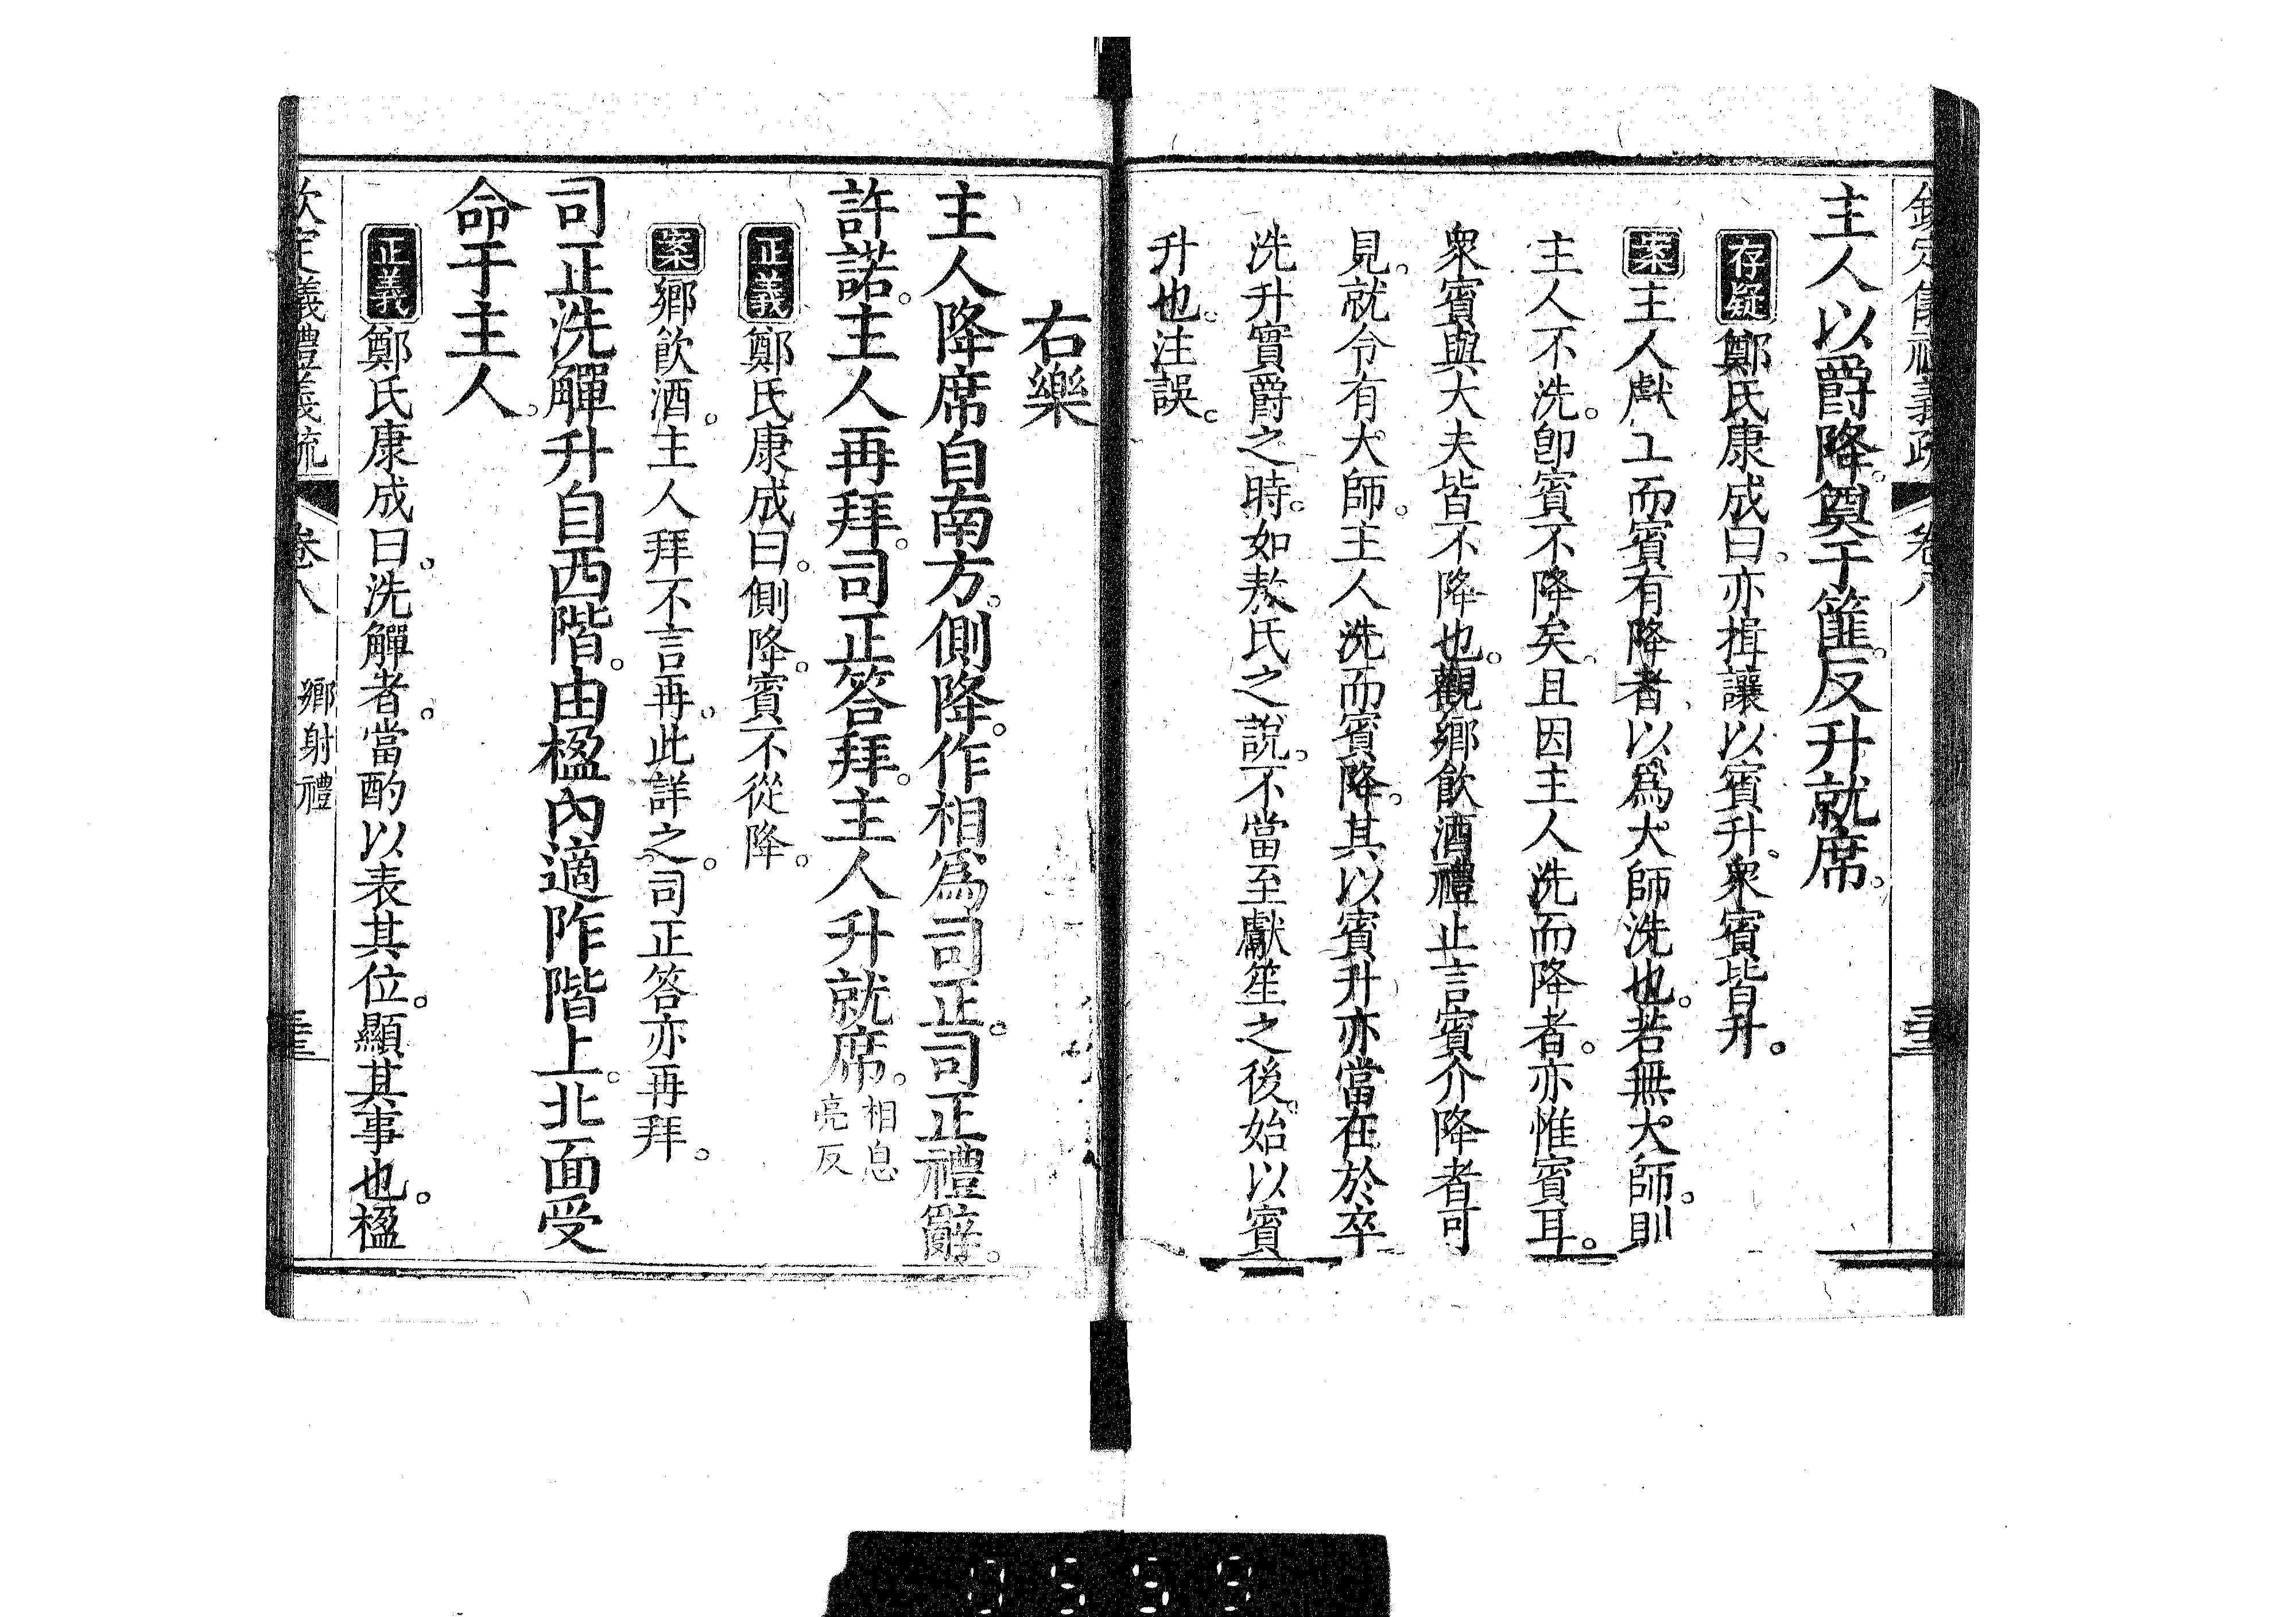 欽定儀禮義疏 卷八
主人以爵降。奠于篚。反升就席。
存疑鄭氏康成曰。亦揖讓以賓升。衆賓皆升。
案主人獻工而賓有降者。以爲大師洗也。若無大師。則
主人不洗。卽賓不降矣。且因主人洗而降者。亦惟賓耳。
衆賓與大夫皆不降也。觀鄉飲酒禮止言賓介降者可
見。就令有大師。主人洗而賓降。其以賓升亦當在於卒
洗升實爵之時。如敖氏之說。不當至獻笙之後。始以賓
升也。注誤。
右樂
主人降席自南方。側降。作相爲司正。司正禮辭。
許諾。主人再拜。司正答拜。主人升就席。相息亮反
正義鄭氏康成曰。側降。賓不從降。
案鄉飲酒。主人拜不言再。此詳之。司正答亦再拜。
司正洗觶升自西階。由楹內適阼階上。北面受
命于主人。
正義鄭氏康成曰。洗觶者。當酌以表其位。顯其事也。楹
欽定義禮義疏 卷八 鄉射禮